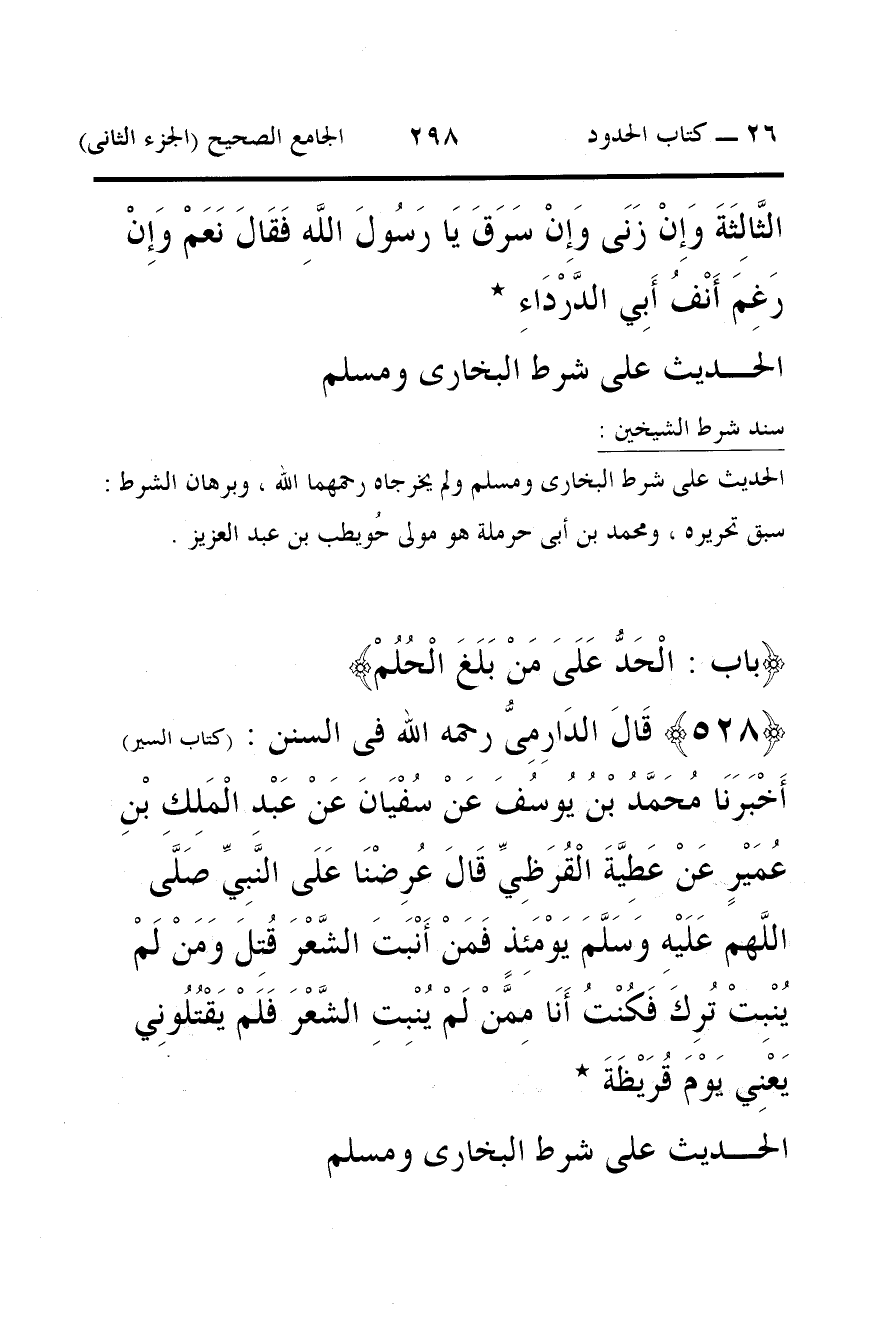 ٢٦ ــ كتاب الحدود ٢٩٨ الجامع الصحيح (الجزء الثانى)
الثَّالِثَةَ وَإِنْ زَنَى وَإِنْ سَرَقَ يَا رَسُولَ اللَّهِ فَقَالَ نَعَمْ وَإِنْ
رَغِمَ أَنْفُ أَبِي الدَّرْدَاءِ *
الحـــديث على شرط البخارى ومسلم
سند شرط الشيخين :
الحديث على شرط البخارى ومسلم ولم يخرجاه رحمهما الله ، وبرهان الشرط :
سبق تحريره ، ومحمد بن أبى حرملة هو مولى حُويطب بن عبد العزيز .
﴿باب : الْحَدُّ عَلَىَ مَنْ بَلَغَ الْحُلُمْ﴾
﴿٥٢٨﴾ قَالَ الدَارِمِىُّ رحمه الله فى السنن : (كتاب السير)
أَخْبَرَنَا مُحَمَّدُ بْنُ يُوسُفَ عَنْ سُفْيَانَ عَنْ عَبْدِ الْمَلِكِ بْنِ
عُمَيْرٍ عَنْ عَطِيَّةَ الْقُرَظِيِّ قَالَ عُرِضْنَا عَلَى النَّبِيِّ صَلَّى
اللَّهم عَلَيْهِ وَسَلَّمَ يَوْمَئِذٍ فَمَنْ أَنْبَتَ الشَّعْرَ قُتِلَ وَمَنْ لَمْ
يُنْبِتْ تُرِكَ فَكُنْتُ أَنَا مِمَّنْ لَمْ يُنْبِتِ الشَّعْرَ فَلَمْ يَقْتُلُونِي
يَعْنِي يَوْمَ قُرَيْظَةَ *
الحـــديث على شرط البخارى ومسلم